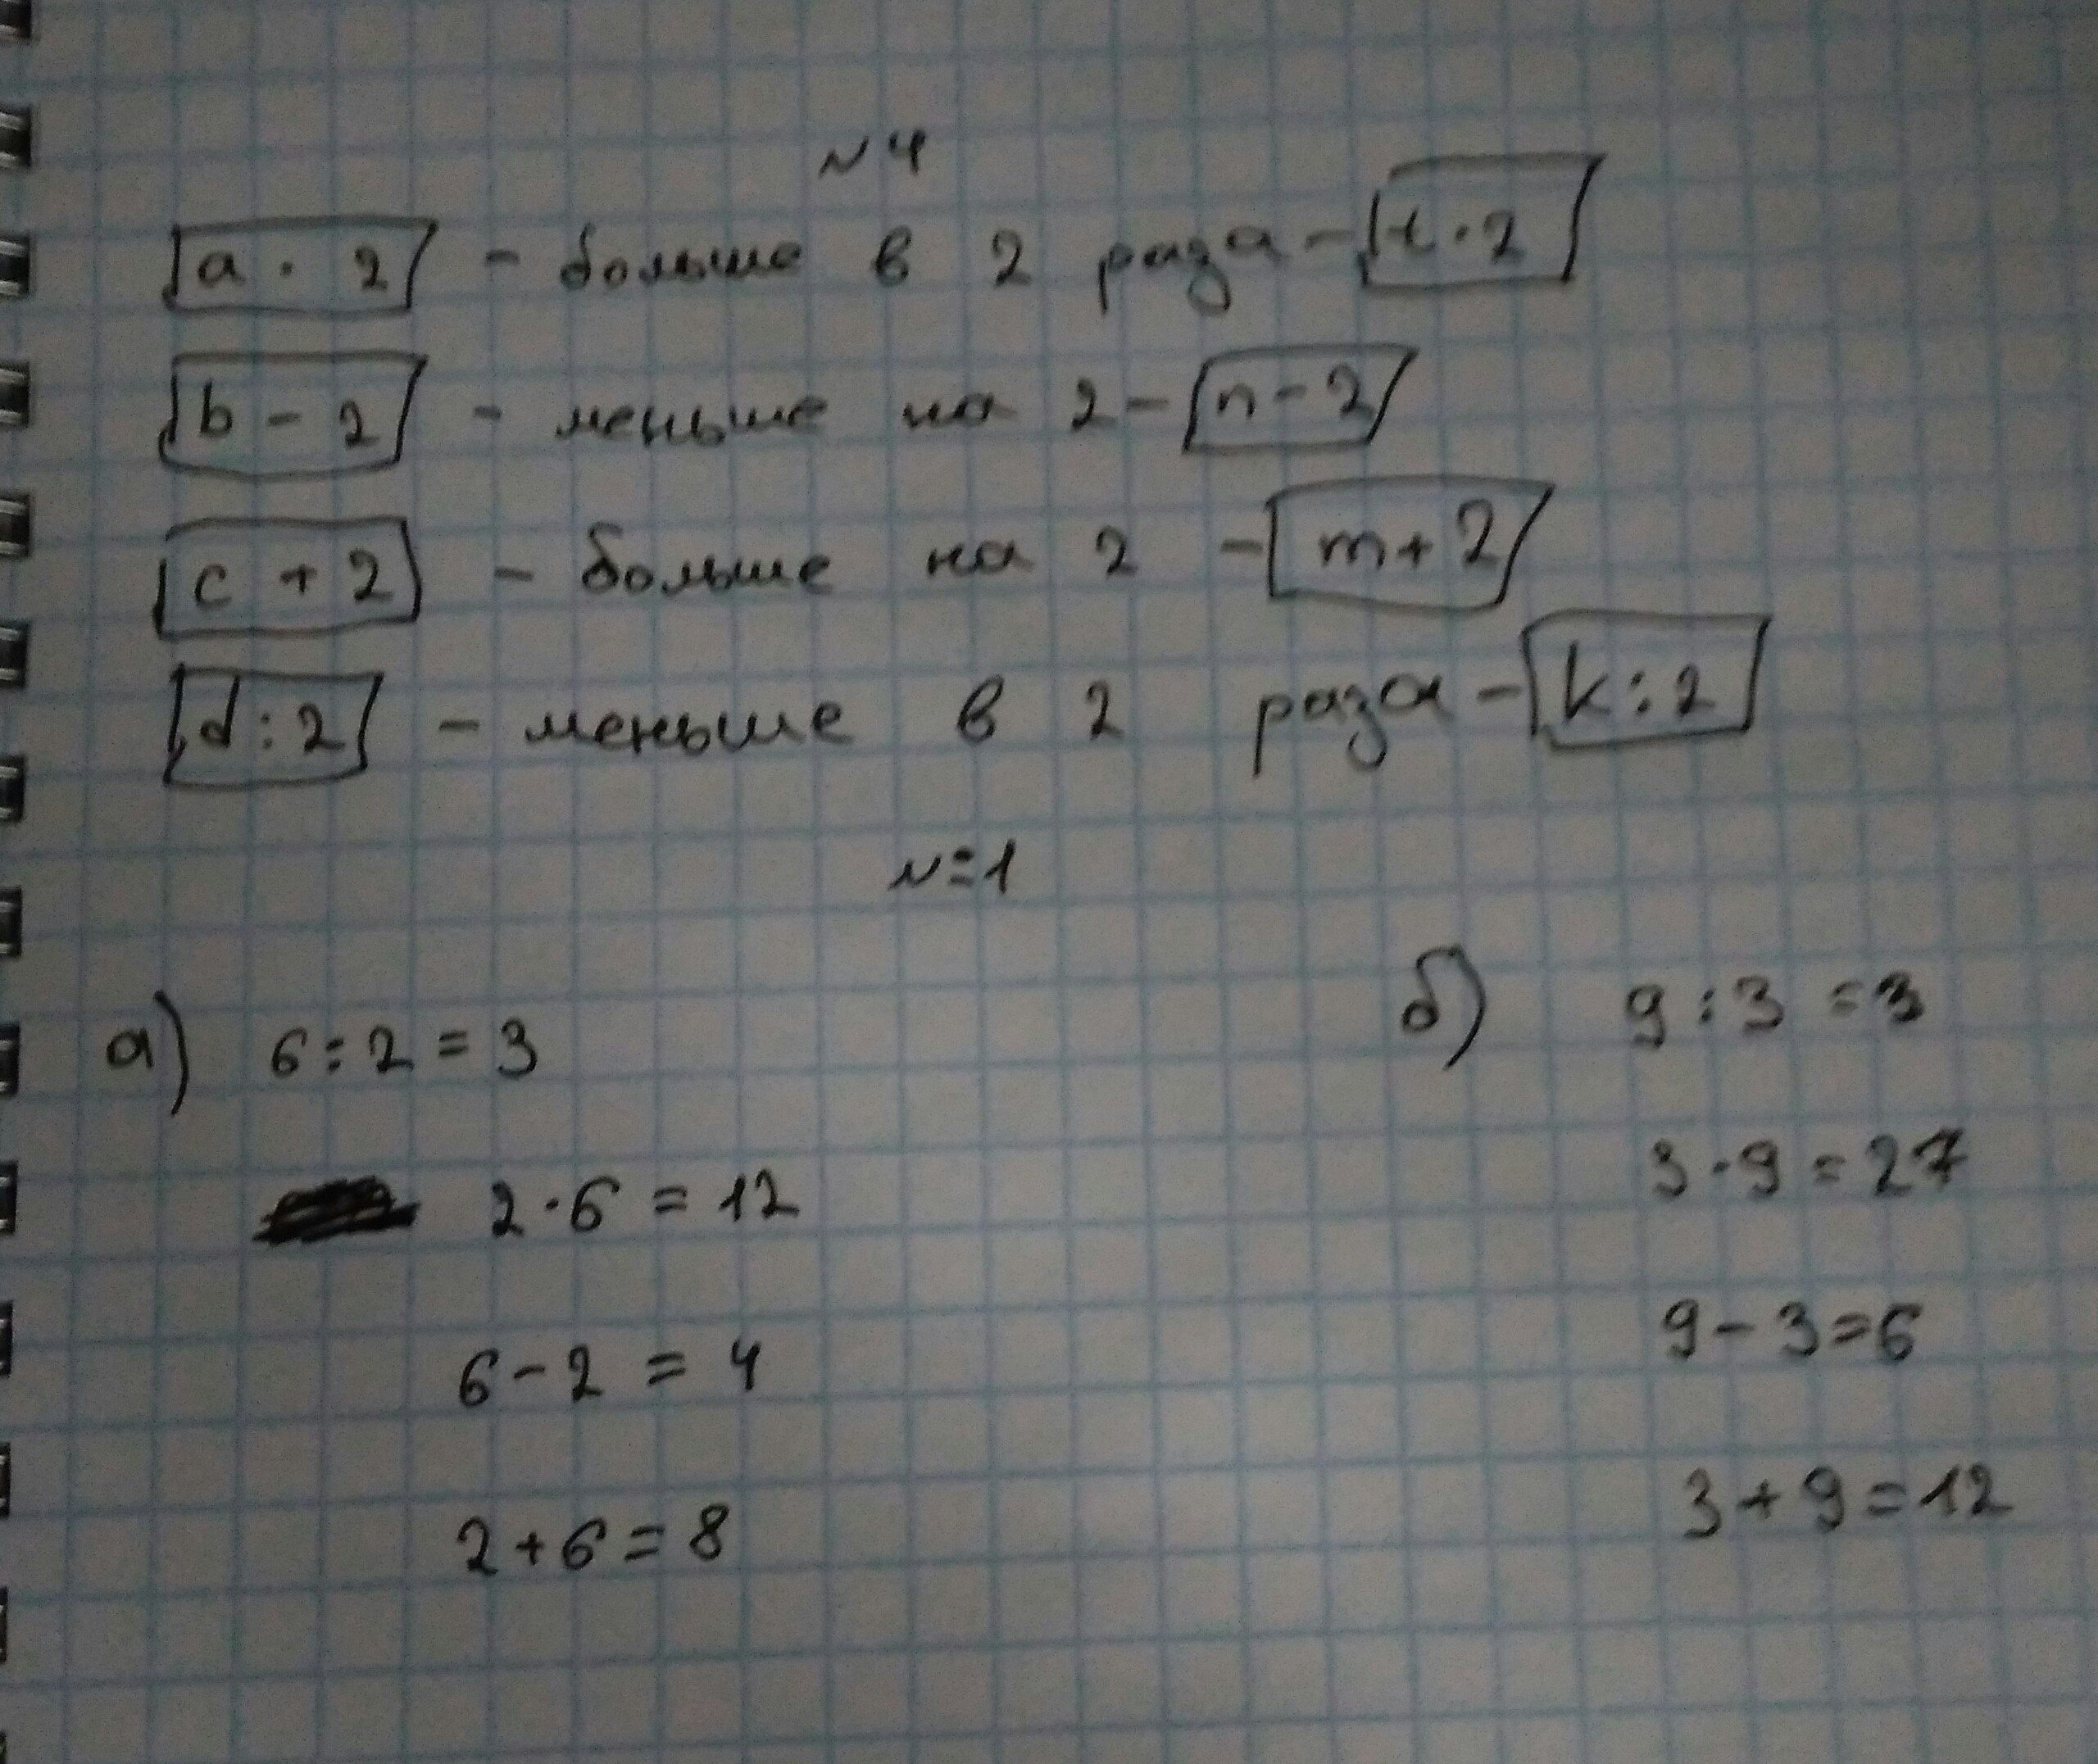 №4
a · 2 - больше в 2 раза - t · 2
b - 2 - меньше на 2 - n - 2
c + 2 - больше на 2 - m + 2
d : 2 - меньше в 2 раза - k : 2
№1
а) 6 : 2 = 3
2 · 6 = 12
6 - 2 = 4
2 + 6 = 8
б) 9 : 3 = 3
3 · 9 = 27
9 - 3 = 6
3 + 9 = 12